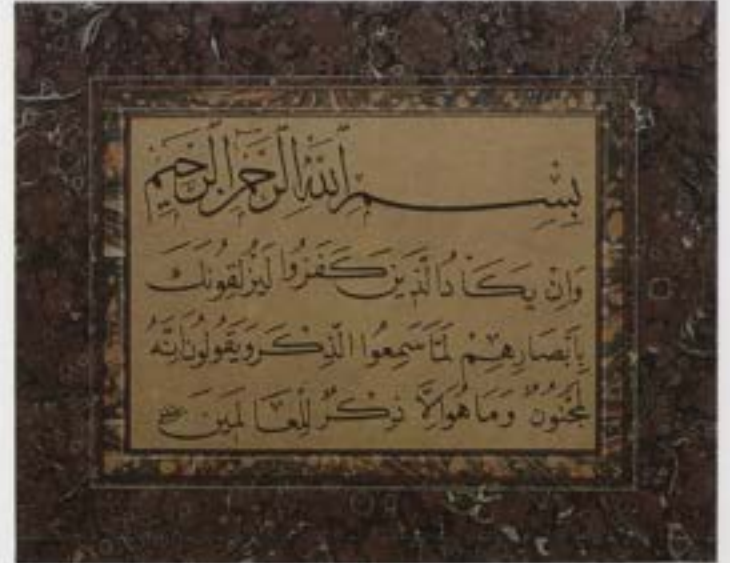 بِسْمِ ٱللّٰهِ الرَّحْمٰنِ الرَّحِيمِ
وَاِنْ يَكَادُ الَّذِينَ كَفَرُوا لَيُزْلِقُونَكَ
بِاَبْصَارِهِمْ لَمَّا سَمِعُوا الذِّكْرَ وَيَقُولُونَ اِنَّهُ
لَمَجْنُونٌ وَمَا هُوَ اِلَّا ذِكْرٌ لِلْعَالَمِينَ